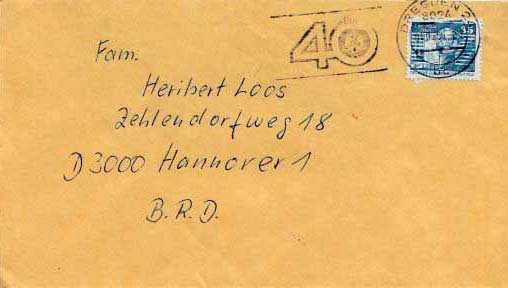 DRESDEN 2
8024
40
35
Fam.
Heribert Loos
Zehlendorfweg 18
D 3000 Hannover 1
B.R.D.